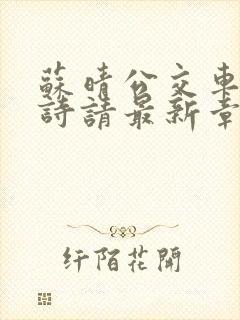 蘇晴公交車
詩請最新章
纤陌花開